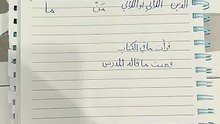 الذين اللائي أو اللاتي مَنْ ما
قرأت ما في الكتاب
فهمت ما قاله المدرس